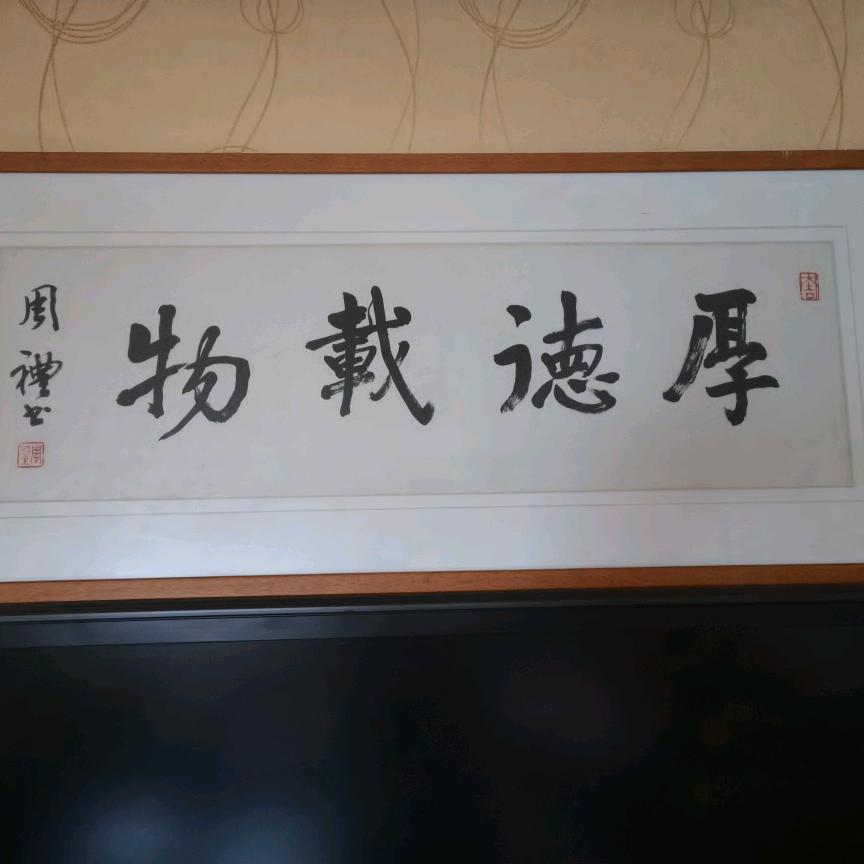 厚德載物
周禮书